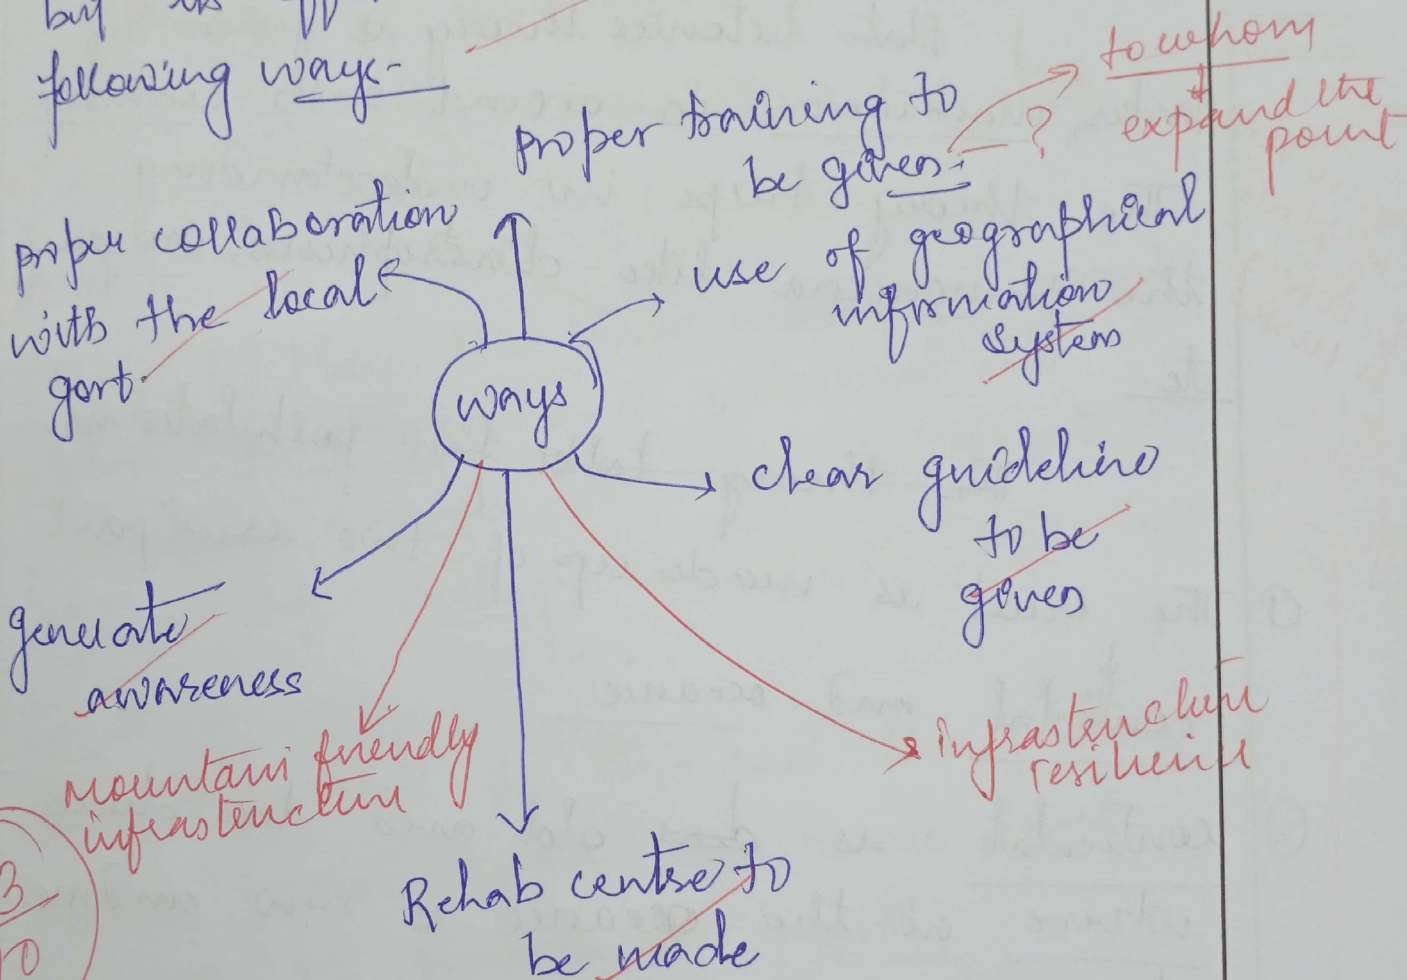 but
following ways-
to whom
expand the
point
proper training to
be given.
— ?
proper collaboration
with the local
govt.
use of geographical
information
system
ways
clear guideline
to be
given
generate
awareness
mountain friendly
infrastructure
infrastructure
resilience
Rehab centre to
be made
3
10